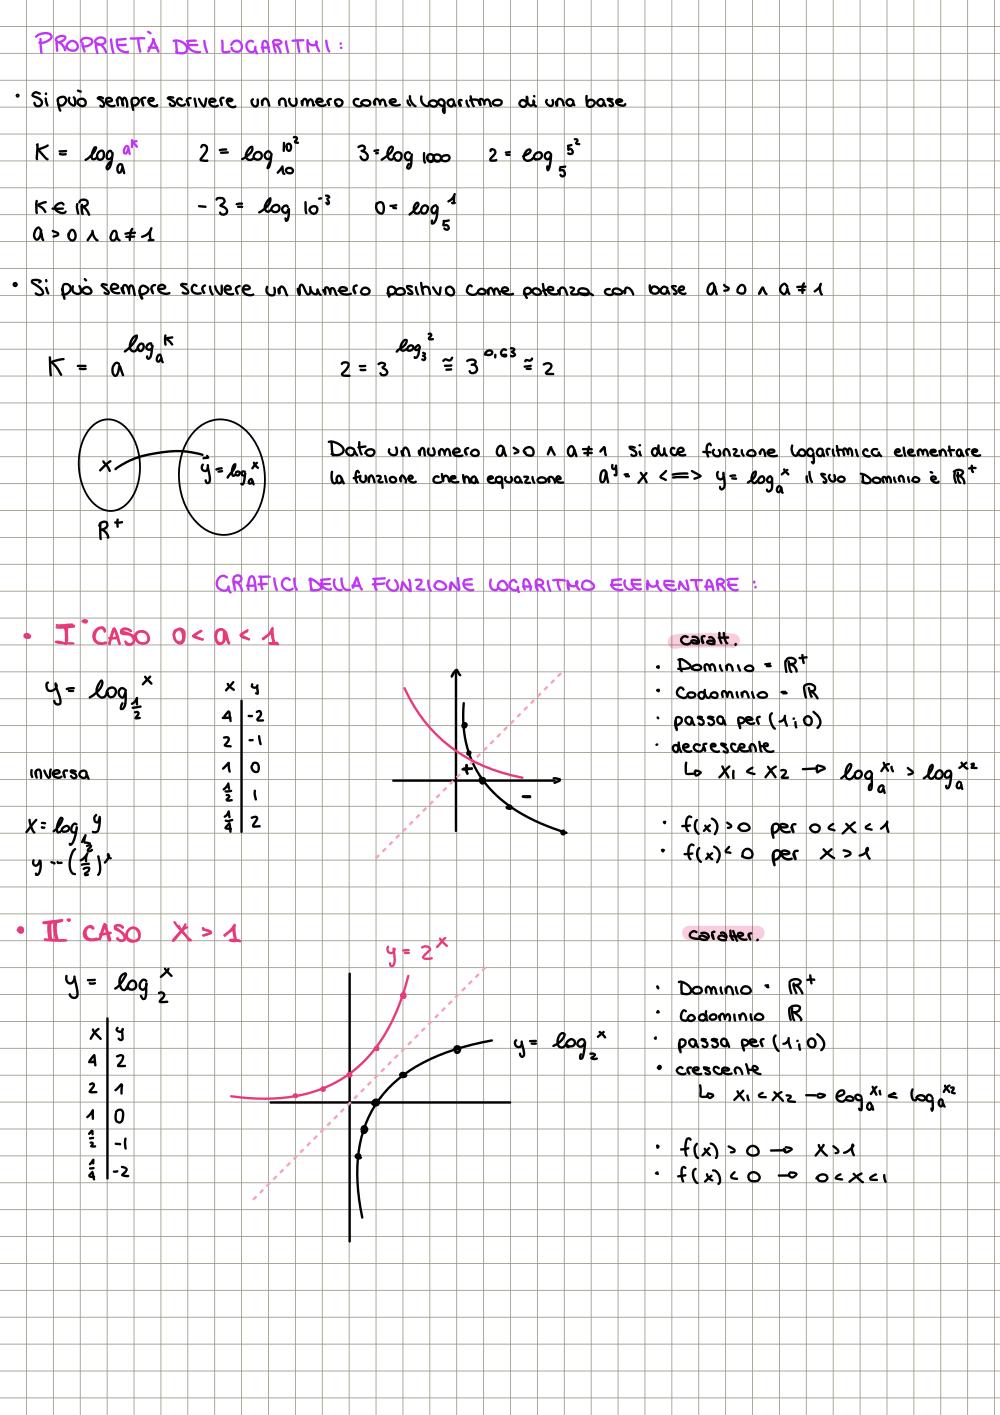 PROPRIETÀ DEI LOGARITMI:
• Si può sempre scrivere un numero come il logaritmo di una base
K = logₐ aᵏ   2 = log₁₀ 10²   3 = log 1000   2 = log₅ 5²
K ∈ ℝ   -3 = log 10⁻³   0 = log₅ 1
a > 0 ∧ a ≠ 1
• Si può sempre scrivere un numero positivo come potenza con base a > 0 ∧ a ≠ 1
K = a^(logₐ K)   2 = 3^(log₃ 2) ≅ 3^(0,63) ≅ 2
x   y = logₐ x
R⁺
Dato un numero a > 0 ∧ a ≠ 1 si dice funzione logaritmica elementare
la funzione che ha equazione aʸ = x <=> y = logₐ x il suo Dominio è ℝ⁺
GRAFICI DELLA FUNZIONE LOGARITMO ELEMENTARE :
• I° CASO 0 < a < 1
y = log_(1/2) x
x | y
4 | -2
2 | -1
1 | 0
1/2 | 1
1/4 | 2
inversa
x = log_(1/2) y
+
-
caratt.
• Dominio = ℝ⁺
• Codominio = ℝ
• passa per (1;0)
• decrescente
↳ x₁ < x₂ → logₐ x₁ > logₐ x₂
• f(x) > 0 per 0 < x < 1
• f(x) < 0 per x > 1
• II° CASO X > 1
y = log₂ x
x | y
4 | 2
2 | 1
1 | 0
1/2 | -1
1/4 | -2
y = 2ˣ
y = log₂ x
caratter.
• Dominio • ℝ⁺
• Codominio ℝ
• passa per (1;0)
• crescente
↳ x₁ < x₂ → logₐ x₁ < logₐ x₂
• f(x) > 0 → x > 1
• f(x) < 0 → 0 < x < 1